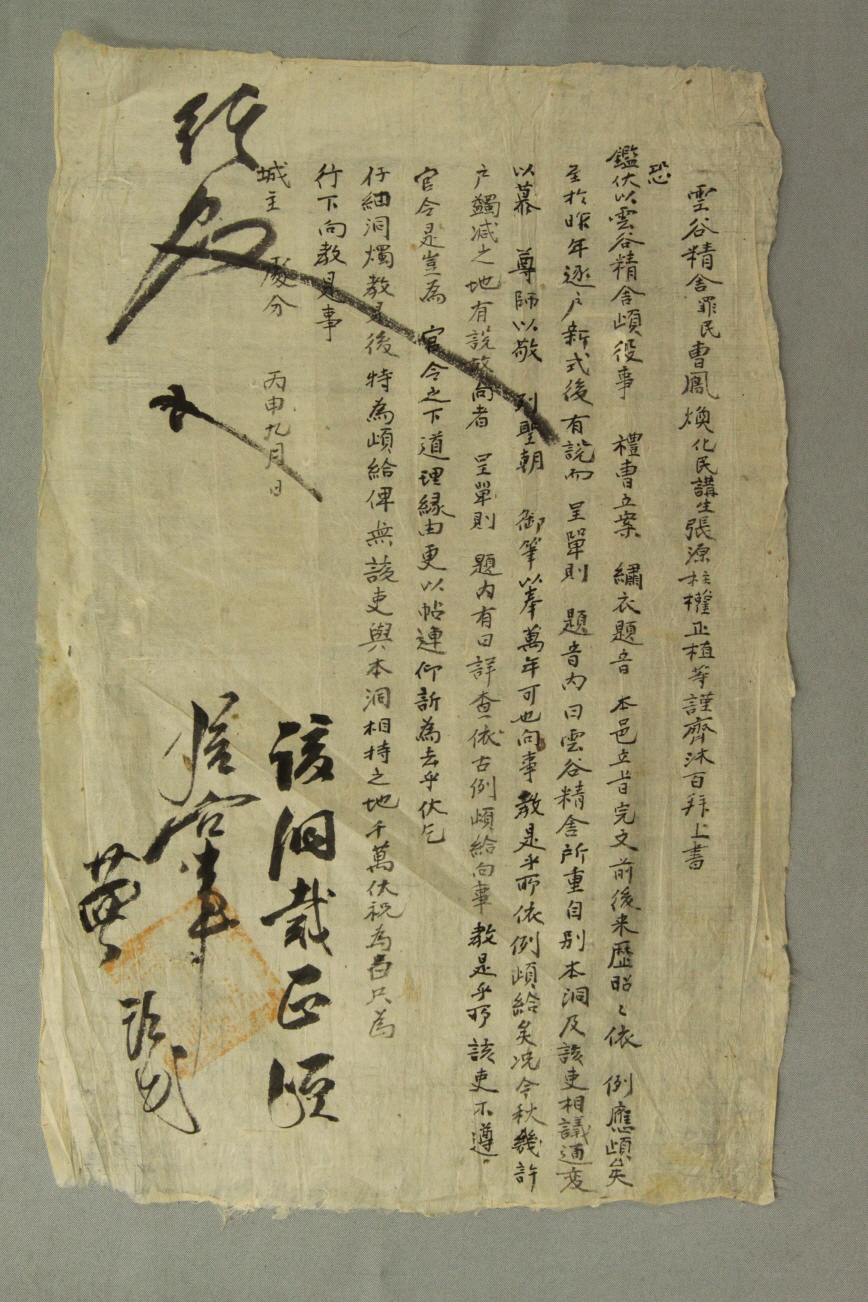 雲谷精舍罪民曹鳳煥化民講生張源柱權正植等謹齊沐百拜上書
恐
鑑伏以雲谷精舍頉役事 禮曹立案 繡衣題音 本邑立旨完文前後來歷昭〻依 例應頉矣
至於昨年逐戶新式後有說而 呈單則 題音內曰雲谷精舍所重自別本洞及該吏相議通变
以慕 尊師以敬 列聖朝 御筆以奉萬年可也向事 教是乎所依例頉給矣况今秋幾許
戶蠲减之地有說故向者 呈單則 題內有曰詳查依古例頉給向事 教是乎所該吏不遵
官令是豈爲 官令之下道理緣由更以帖連仰訴爲去乎伏乞
仔細洞燭教是後特爲頉給俾無該吏與本洞相持之地千萬伏祝爲白只爲
行下向教是事
城主 處分 丙申九月日
該洞哉正頉
給宜事